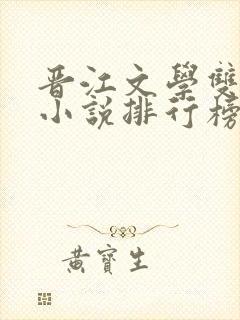 晋江文學雙
小說排行榜
黃寶生